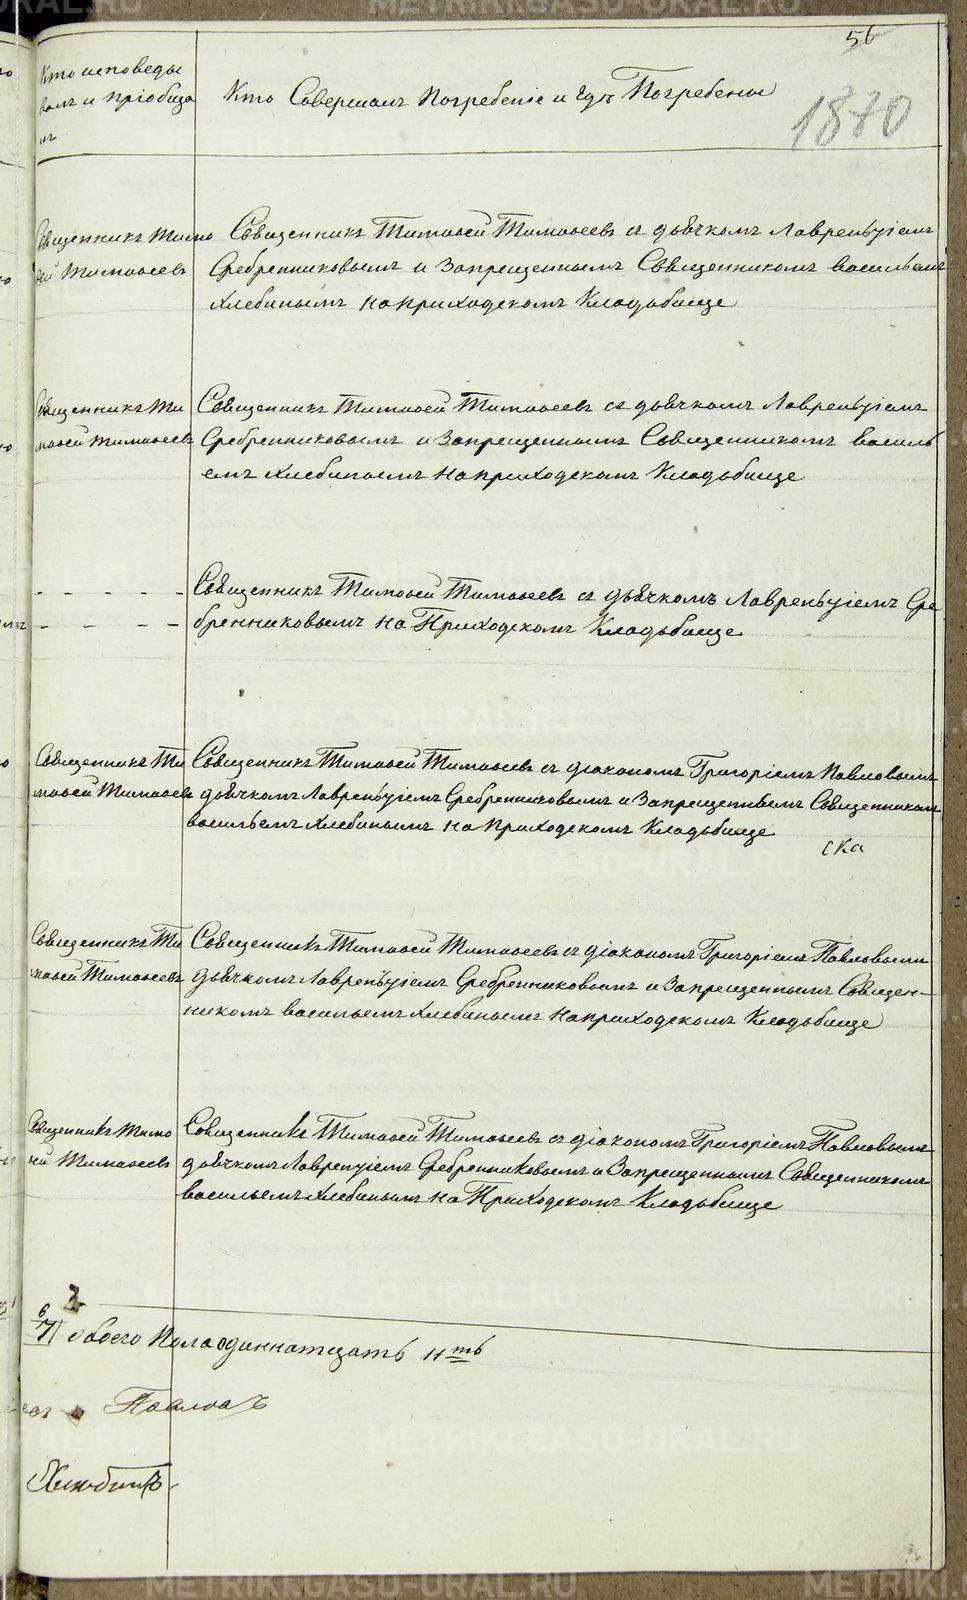 56
1870
Кто исповеды
валъ и пріобща
лъ
Кто Совершалъ Погребеніе и гдѣ Погребены
Священникъ Тимо
ѳей Тимоѳеевъ
Священникъ Тимоѳей Тимоѳеевъ съ дьячкомъ Лаврентіемъ
Сребренниковымъ и Запрещеннымъ Священникомъ васильемъ
Хлебинымъ на приходскомъ Кладьбище
Священникъ Ти
моѳей Тимоѳеевъ
Священникъ Тимоѳей Тимоѳеевъ съ дьячкомъ Лаврентіемъ
Сребренниковымъ и Запрещеннымъ Священникомъ василь
емъ Хлебинымъ на приходскомъ Кладьбище
- - - - -
- - - -
Священникъ Тимоѳей Тимоѳеевъ съ дьячкомъ Лаврентіемъ Сре
бренниковымъ на Приходскомъ Кладьбище
Священникъ Ти
моѳей Тимоѳеевъ
Священникъ Тимоѳей Тимоѳеевъ съ діакономъ Григоріемъ Павловымъ
дьячкомъ Лаврентіемъ Сребренниковымъ и Запрещеннымъ Священникомъ
васильемъ Хлебинымъ на приходскомъ Кладьбище
ска
Священникъ Ти
моѳей Тимоѳеевъ
Священникъ Тимоѳей Тимоѳеевъ съ діакономъ Григоріемъ Павловымъ
дьячкомъ Лаврентіемъ Сребренниковымъ и Запрещеннымъ Священ-
никомъ васильемъ Хлебинымъ на приходскомъ Кладьбище
Священникъ Тимо
ѳей Тимоѳеевъ
Священникъ Тимоѳей Тимоѳеевъ съ діакономъ Григоріемъ Павловымъ
дьячкомъ Лаврентіемъ Сребренниковымъ и Запрещеннымъ Священникомъ
васильемъ Хлебинымъ на Приходскомъ Кладьбище
обоего Пола одиннатцать 11ть
Павловъ
Хлебинъ
METRIKI.GASO-URAL.RU